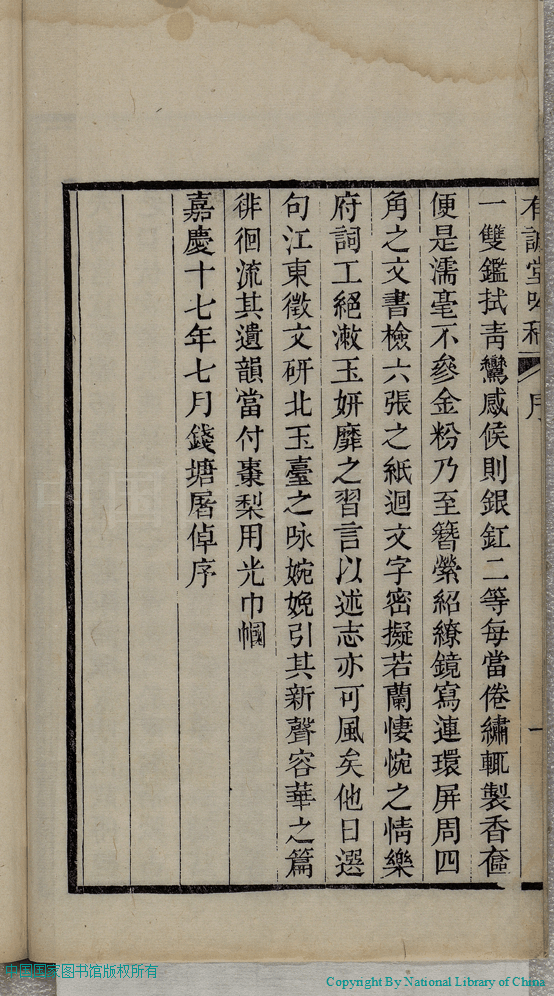 有誠堂吟稿 序 一
一雙鑑拭靑鸞感候則銀釭二等每當倦繡輒製香奩
便是濡毫不參金粉乃至簪縈紹繚鏡寫連環屏周四
角之文書檢六張之紙迴文字密擬若蘭悽惋之情樂
府詞工絕漱玉妍靡之習言以述志亦可風矣他日選
句江東徵文研北玉臺之咏婉娩引其新聲容華之篇
徘徊流其遺韻當付棗梨用光巾幗
嘉慶十七年七月錢塘屠倬序
中国国家图书馆版权所有
Copyright By National Library of China